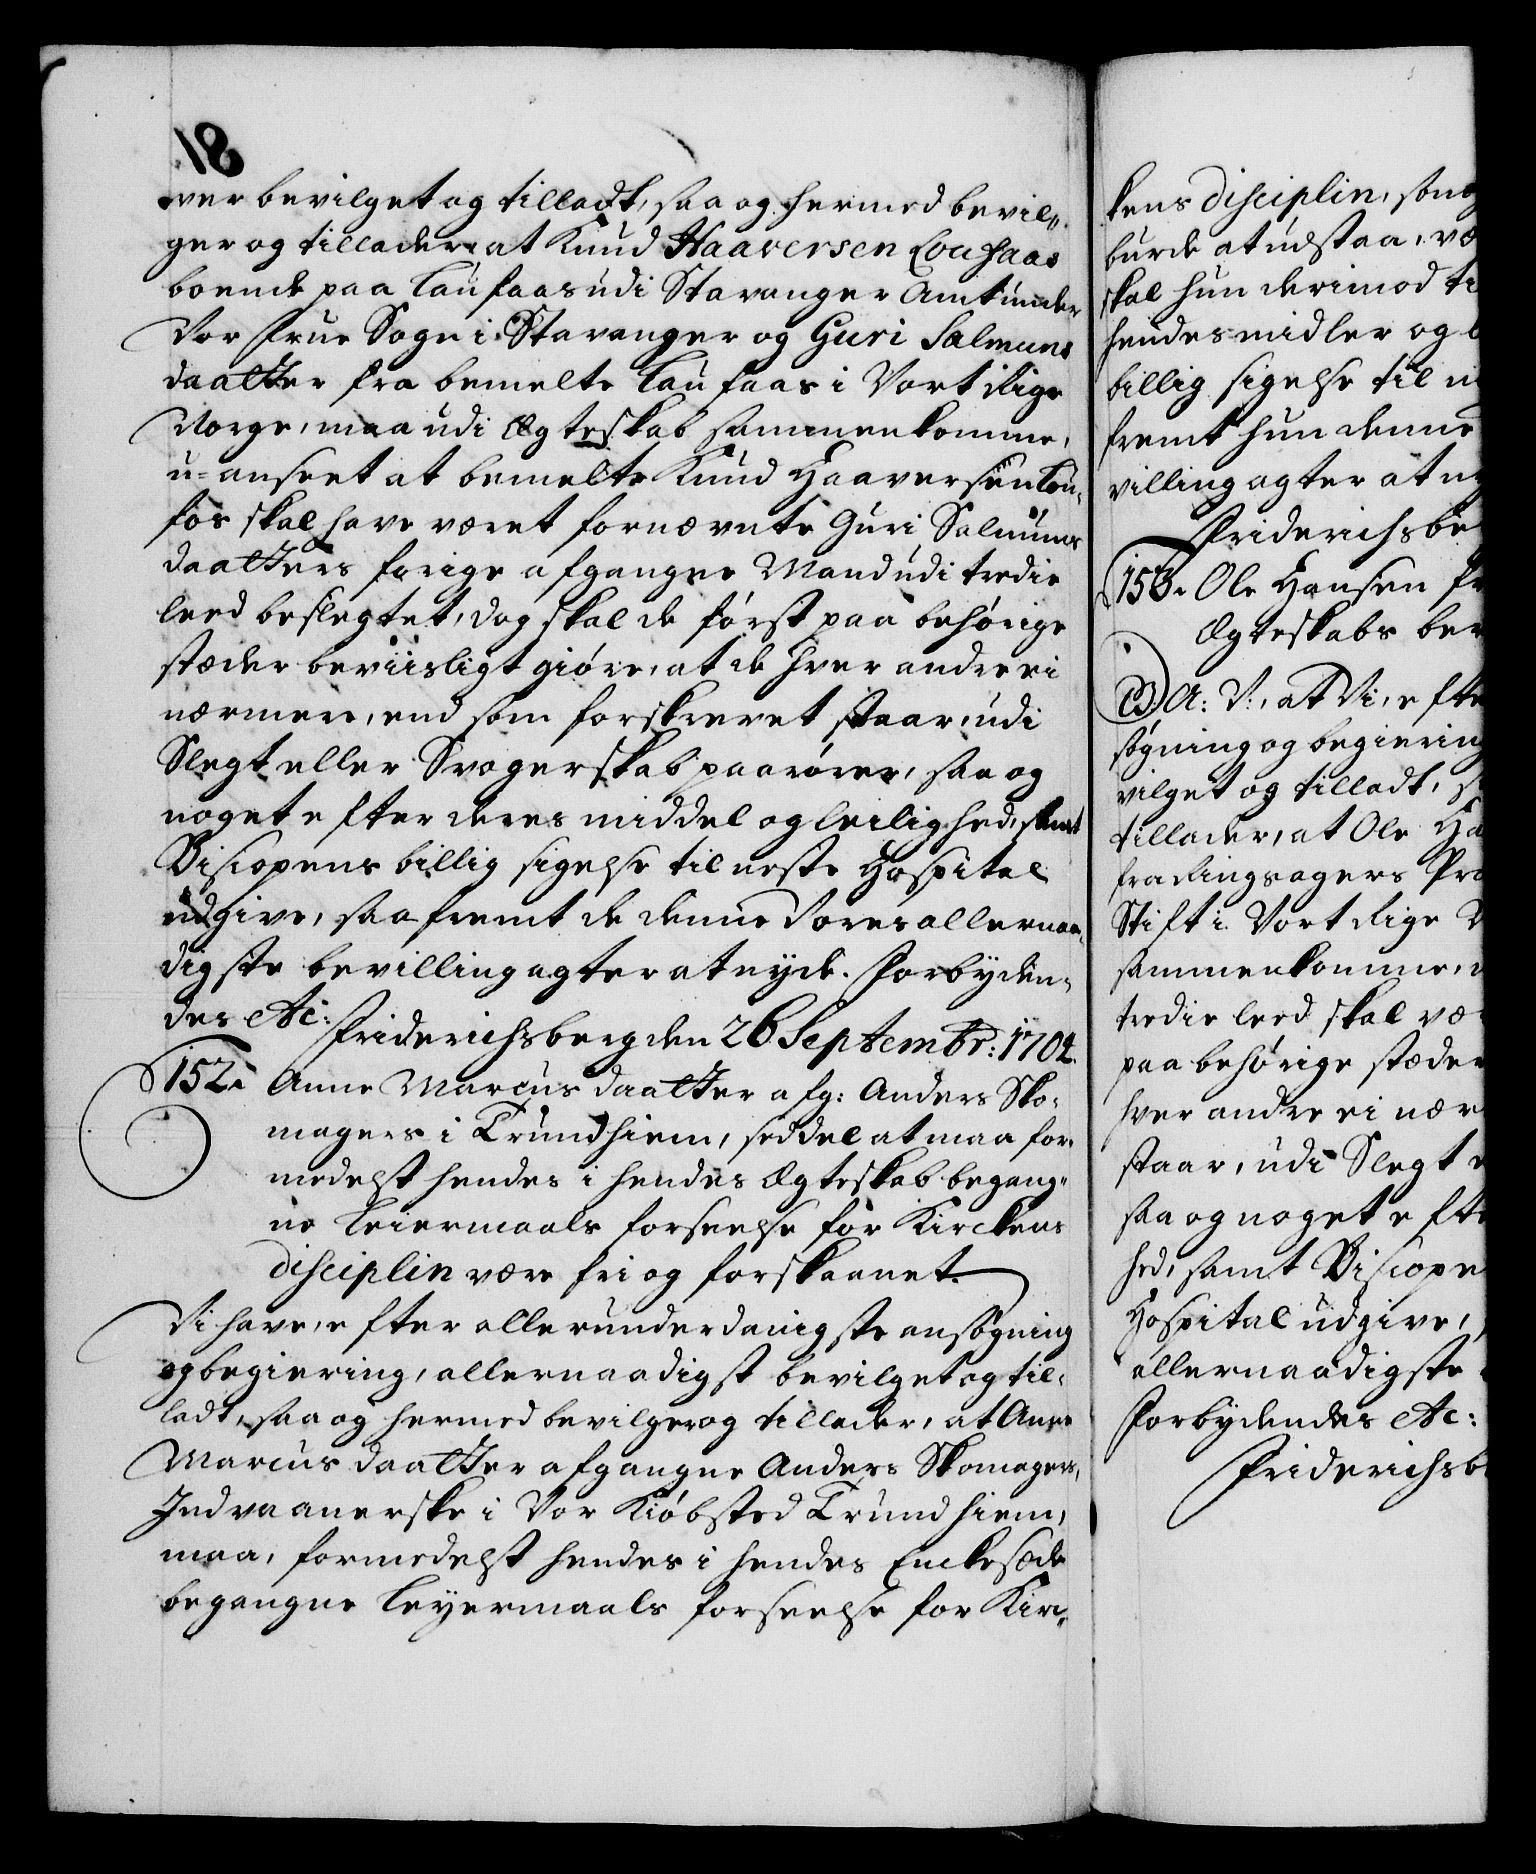 ver bevilget og tilladt, saa og hermed bevil„
ger og tillader, at Knud Haaversen Loufaas
boende paa Laufaas udi Stavanger Amt under
Vor frue Sogn i Stavanger og Guri Salmuns
daatter fra bemelte Laufaas i Vort Rige
Norge, maa udi Ægteskab sammenkomme,
u-anseet at bemelte Knud Haaversen Lou„
fos skal have været fornævnte Guri Salmuns
daatters forige afgangne Mand udi tredie
leed beslegtet, dog skal de först paa behørige
stæder beviisligt giøre, at de hver andre ei
nærmere, end som forskrevet staar, udi
Slegt eller Svogerskab paarører, saa og
noget efter deres middel og leilighed, samt
Biscopens billig sigelse til neste Hospital
udgive, saafremt de denne Vores allernaa„
digste bevilling agter at nyde. Forbyden„
des etc: Friderichsberg den 26 Septembr: 1702.
152. Anne Marcus daatter afg: Anders Sko„
magers i Trundhiem, seddel at maa for„
medelst hendes i hendes Ægteskab begang„
ne Leiermaals forseelse for Kirckens
disciplin være fri og forskaanet.
Vi have, efter allerunderdanigste ansøgning
og begiering, allernaadigst bevilget og til„
ladt, saa og hermed bevilger og tillader, at Anne
Marcus daatter afgangne Anders Skomagers,
Indvaanerske i Vor Kiøbsted Trundhiem,
maa, formedelst hendes i hendes Enckesæde
begangne Leyermaals forseelse for Kirc„
kens disciplin, som
burde at udstaa, væ
skal hun derimod ti
hendes midler og l
billig sigelse til n
fremt hun denne
villing agter at ny
Friderichsbe
153. Ole Hansen fr
Ægteskabs bev
G. A: V:, at Vi, efte
søgning og begiering
vilget og tilladt, s
tillader, at Ole Ha
fra Ringsagers Pr
Stift i Vort Rige N
sammenkomme,
tredie leed skal væ
paa behørige stæder
hver andre ei nær
staar, udi Slegt e
saa og noget efte
hed, samt Biscope
Hospital udgive,
allernaadigste
Forbydendes etc:
Friderichsb